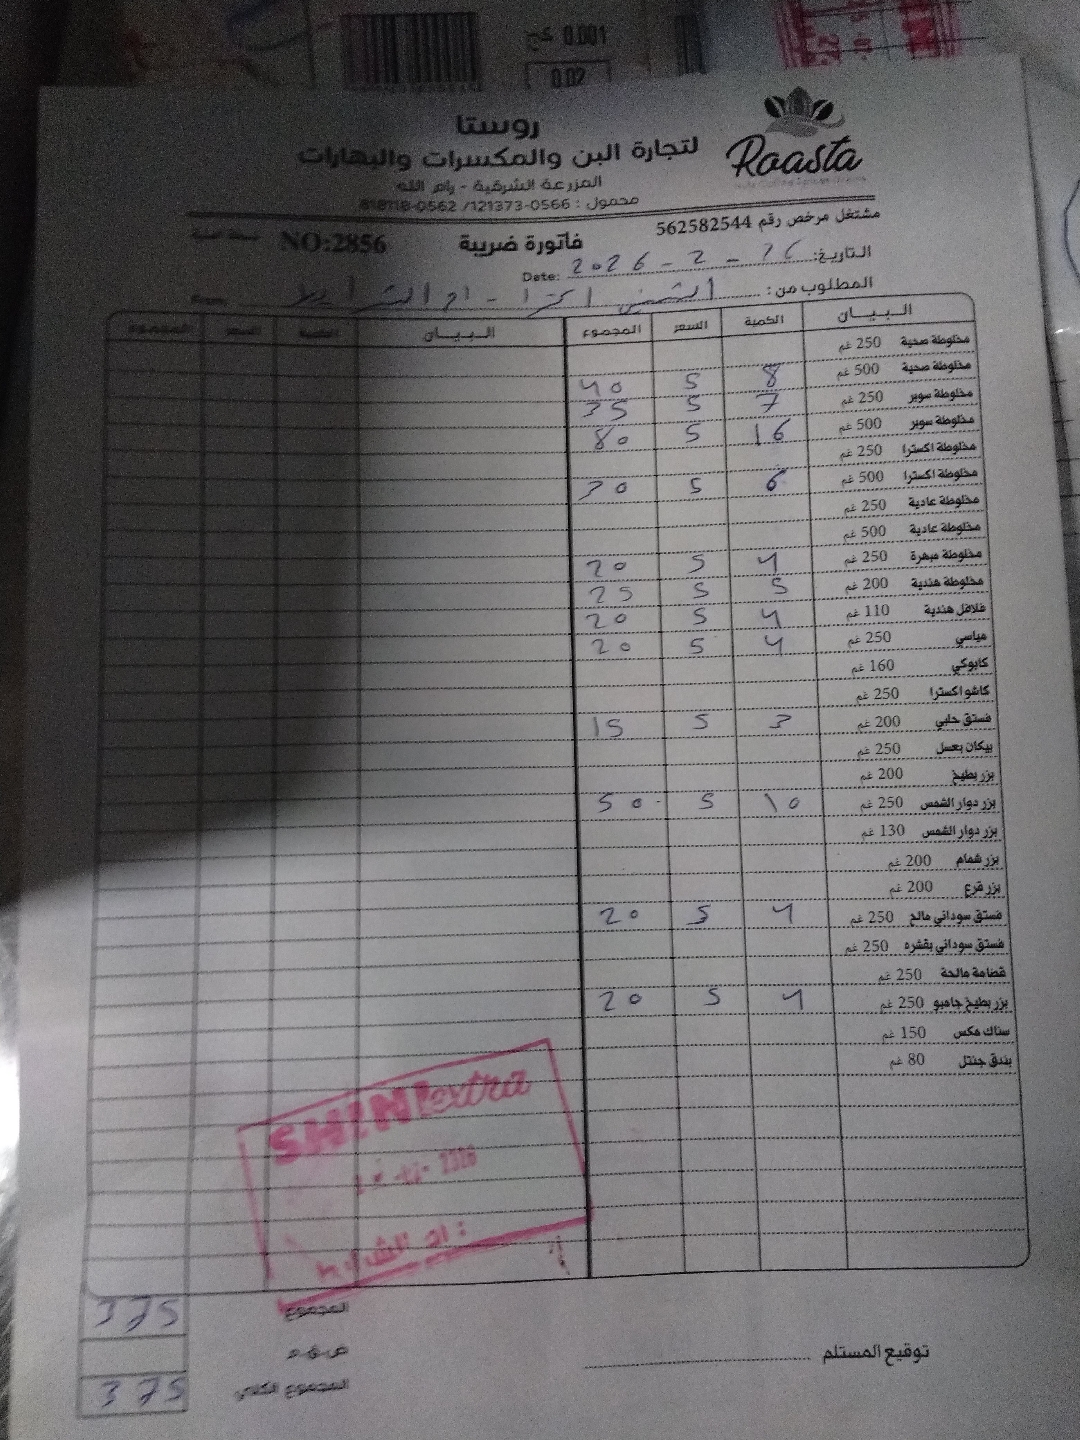 0.001 كج
0.02
Roasta
روستا
لتجارة البن والمكسرات والبهارات
المزرعة الشرقية - رام الله
محمول : 0566-121373/ 0562-818118
مشتغل مرخص رقم 562582544
فاتورة ضريبة
NO:2856
التاريخ: 2026 - 2 - 26 Date:
المطلوب من: الشني اكسترا - ام الشرايط
البيان الكمية السعر المجموع البيان الكمية السعر المجموع
مخلوطة صحية 250 غم
مخلوطة صحية 500 غم 8 5 40
مخلوطة سوبر 250 غم 7 5 35
مخلوطة سوبر 500 غم 16 5 80
مخلوطة اكسترا 250 غم
مخلوطة اكسترا 500 غم 6 5 30
مخلوطة عادية 250 غم
مخلوطة عادية 500 غم
مخلوطة مبهرة 250 غم 4 5 20
مخلوطة هندية 200 غم 5 5 25
فلافل هندية 110 غم 4 5 20
مياسي 250 غم 4 5 20
كابوكي 160 غم
كاشو اكسترا 250 غم
فستق حلبي 200 غم 3 5 15
بيكان بعسل 250 غم
بزر بطيخ 200 غم
بزر دوار الشمس 250 غم 10 5 50
بزر دوار الشمس 130 غم
بزر شمام 200 غم
بزر قرع 200 غم
فستق سوداني مالح 250 غم 4 5 20
فستق سوداني بقشره 250 غم
قضامة مالحة 250 غم
بزر بطيخ جامبو 250 غم 4 5 20
سناك مكس 150 غم
بندق جنتل 80 غم
SHINI extra
ام الشرايط
المجموع 375
ض.ق.م
المجموع الكلي 375
توقيع المستلم